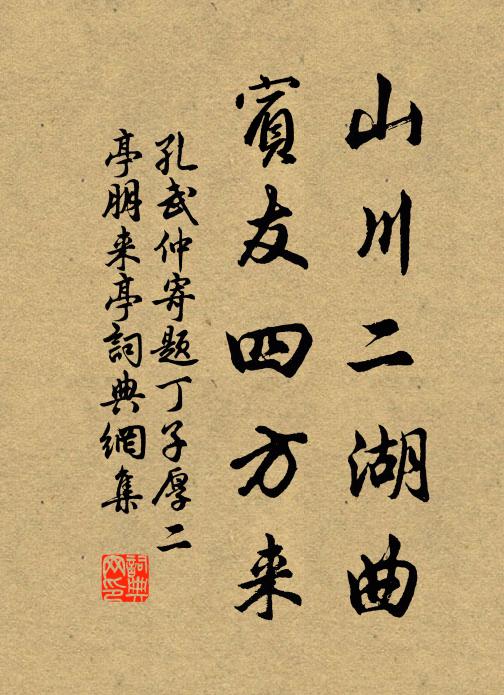 山川二湖曲
賓友四方来
孔武仲寄题丁子厚二
亭朋来亭詞典網集
詞典网印